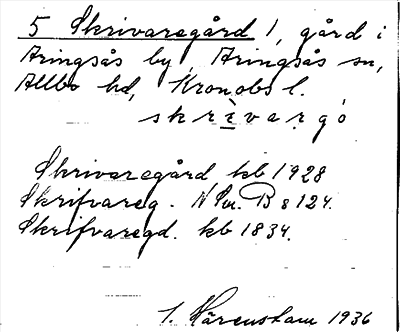 5 Skrivaregård 1, gård i
Aringsås by, Aringsås sn,
Allbo hd, Kronobs l.
skrìvargó
Skrivaregård kb 1928
Skrifvareg. N Sm. B s 124.
Skrifvaregd. kb 1834.
S. Härenstam 1936